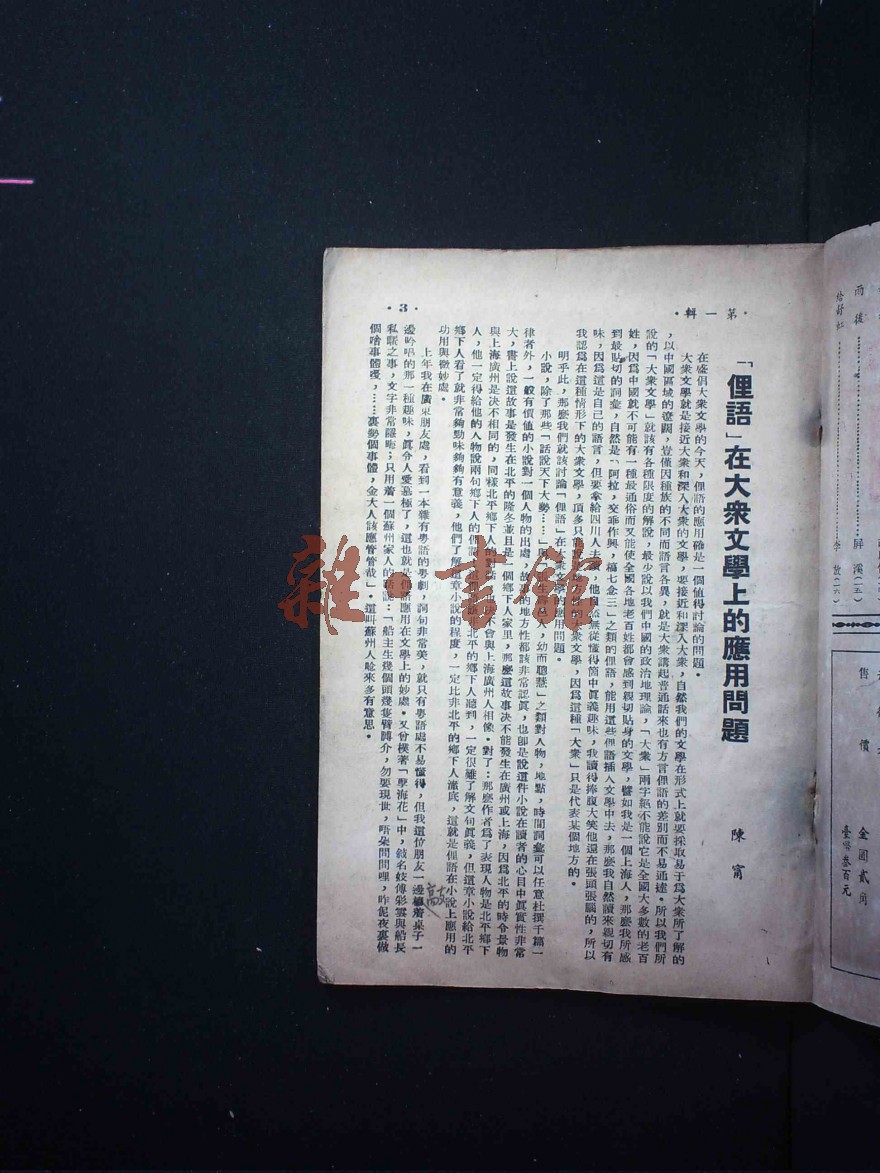 ·第一輯·
「俚語」在大衆文學上的應用問題
陳甯
在盛倡大衆文學的今天，俚語的應用確是一個值得討論的問題。
大衆文學就是接近大衆和深入大衆的文學，要接近和深入大衆，自然我們的文學在形式上就要採取易于爲大衆所了解的
，以中國區域的遼闊，豈僅因種族的不同而語言各異，就是大衆講起普通話來也有方言俚語的差別而不易通達。所以我們所
說的「大衆文學」就該有各種限度的解說，最少說以我們中國的政治地理論，「大衆」兩字絕不能說它是全國大多數的老百
姓，因爲中國就不可能有一種最通俗而又能使全國各地老百姓都會感到親切貼身的文學，譬如我是一個上海人，那麼我所感
到最貼切的詞彙，自然是「阿拉，交乖作興，搞七念三」之類的俚語，能用這些俚語插入文學中去，那麼我自然讀來親切有
味，因爲這是自己的語言，但要拿給四川人去讀，他自然無從懂得箇中眞義趣味，我讀得捧腹大笑他還在張頭張腦的，所以
我認爲在這種情形下的大衆文學，頂多只能說是地方性的大衆文學，因爲這種「大衆」只是代表某個地方的。
明乎此，那麼我們就該討論「俚語」在大衆文學的應用問題。
小說，除了那些「話說天下大勢……」與「生某人，幼而聰慧」之類對人物，地點，時間詞彙可以任意杜撰千篇一
律者外，一般有價值的小說對一個人物的出處，故事的地方性都該非常認眞，也卽是說這件小說在讀者的心目中眞實性非常
大，書上說這故事是發生在北平的隆冬並且是一個鄉下人家里，那麼這故事决不能發生在廣州或上海，因爲北平的時令景物
與上海廣州是决不相同的，同樣北平鄉下人的對話也决不會與上海廣州人相像。對了：那麼作者爲了表現人物是北平鄉下
人，他一定得給他的人物說兩句鄉下人的俚語，北平的鄉下人聽到，一定很難了解文句眞義，但這章小說給北平
鄉下人看了就非常夠勁味夠夠有意義，他們了解這章小說的程度，一定比非北平的鄉下人澈底，這就是俚語在小說上應用的
功用與微妙處。
上年我在廣東朋友處，看到一本雜有粵語的粵劇，詞句非常美，就只有粵語處不易懂得，但我這位朋友一邊敲着桌子一
邊吟唱的那一種趣味，眞令人愛慕極了，這也就是俚語應用在文學上的妙處。又曾樸著「孽海花」中，敍名妓傅彩雲與船長
私暱之事，文字非常隱晦；只用着一個蘇州家人的話說：「船主生幾個頭幾隻臂膊介，勿要現世，唔朶問問哩，咋呢夜裏做
個啥事體嗄，……裏勢個事體，金大人該應管管哉」。這叫蘇州人唸來多有意思。
·3·
雨後
屏溪（一五）
李放（一六）
售價
金圓貳角
臺幣叁百元
雜·書館